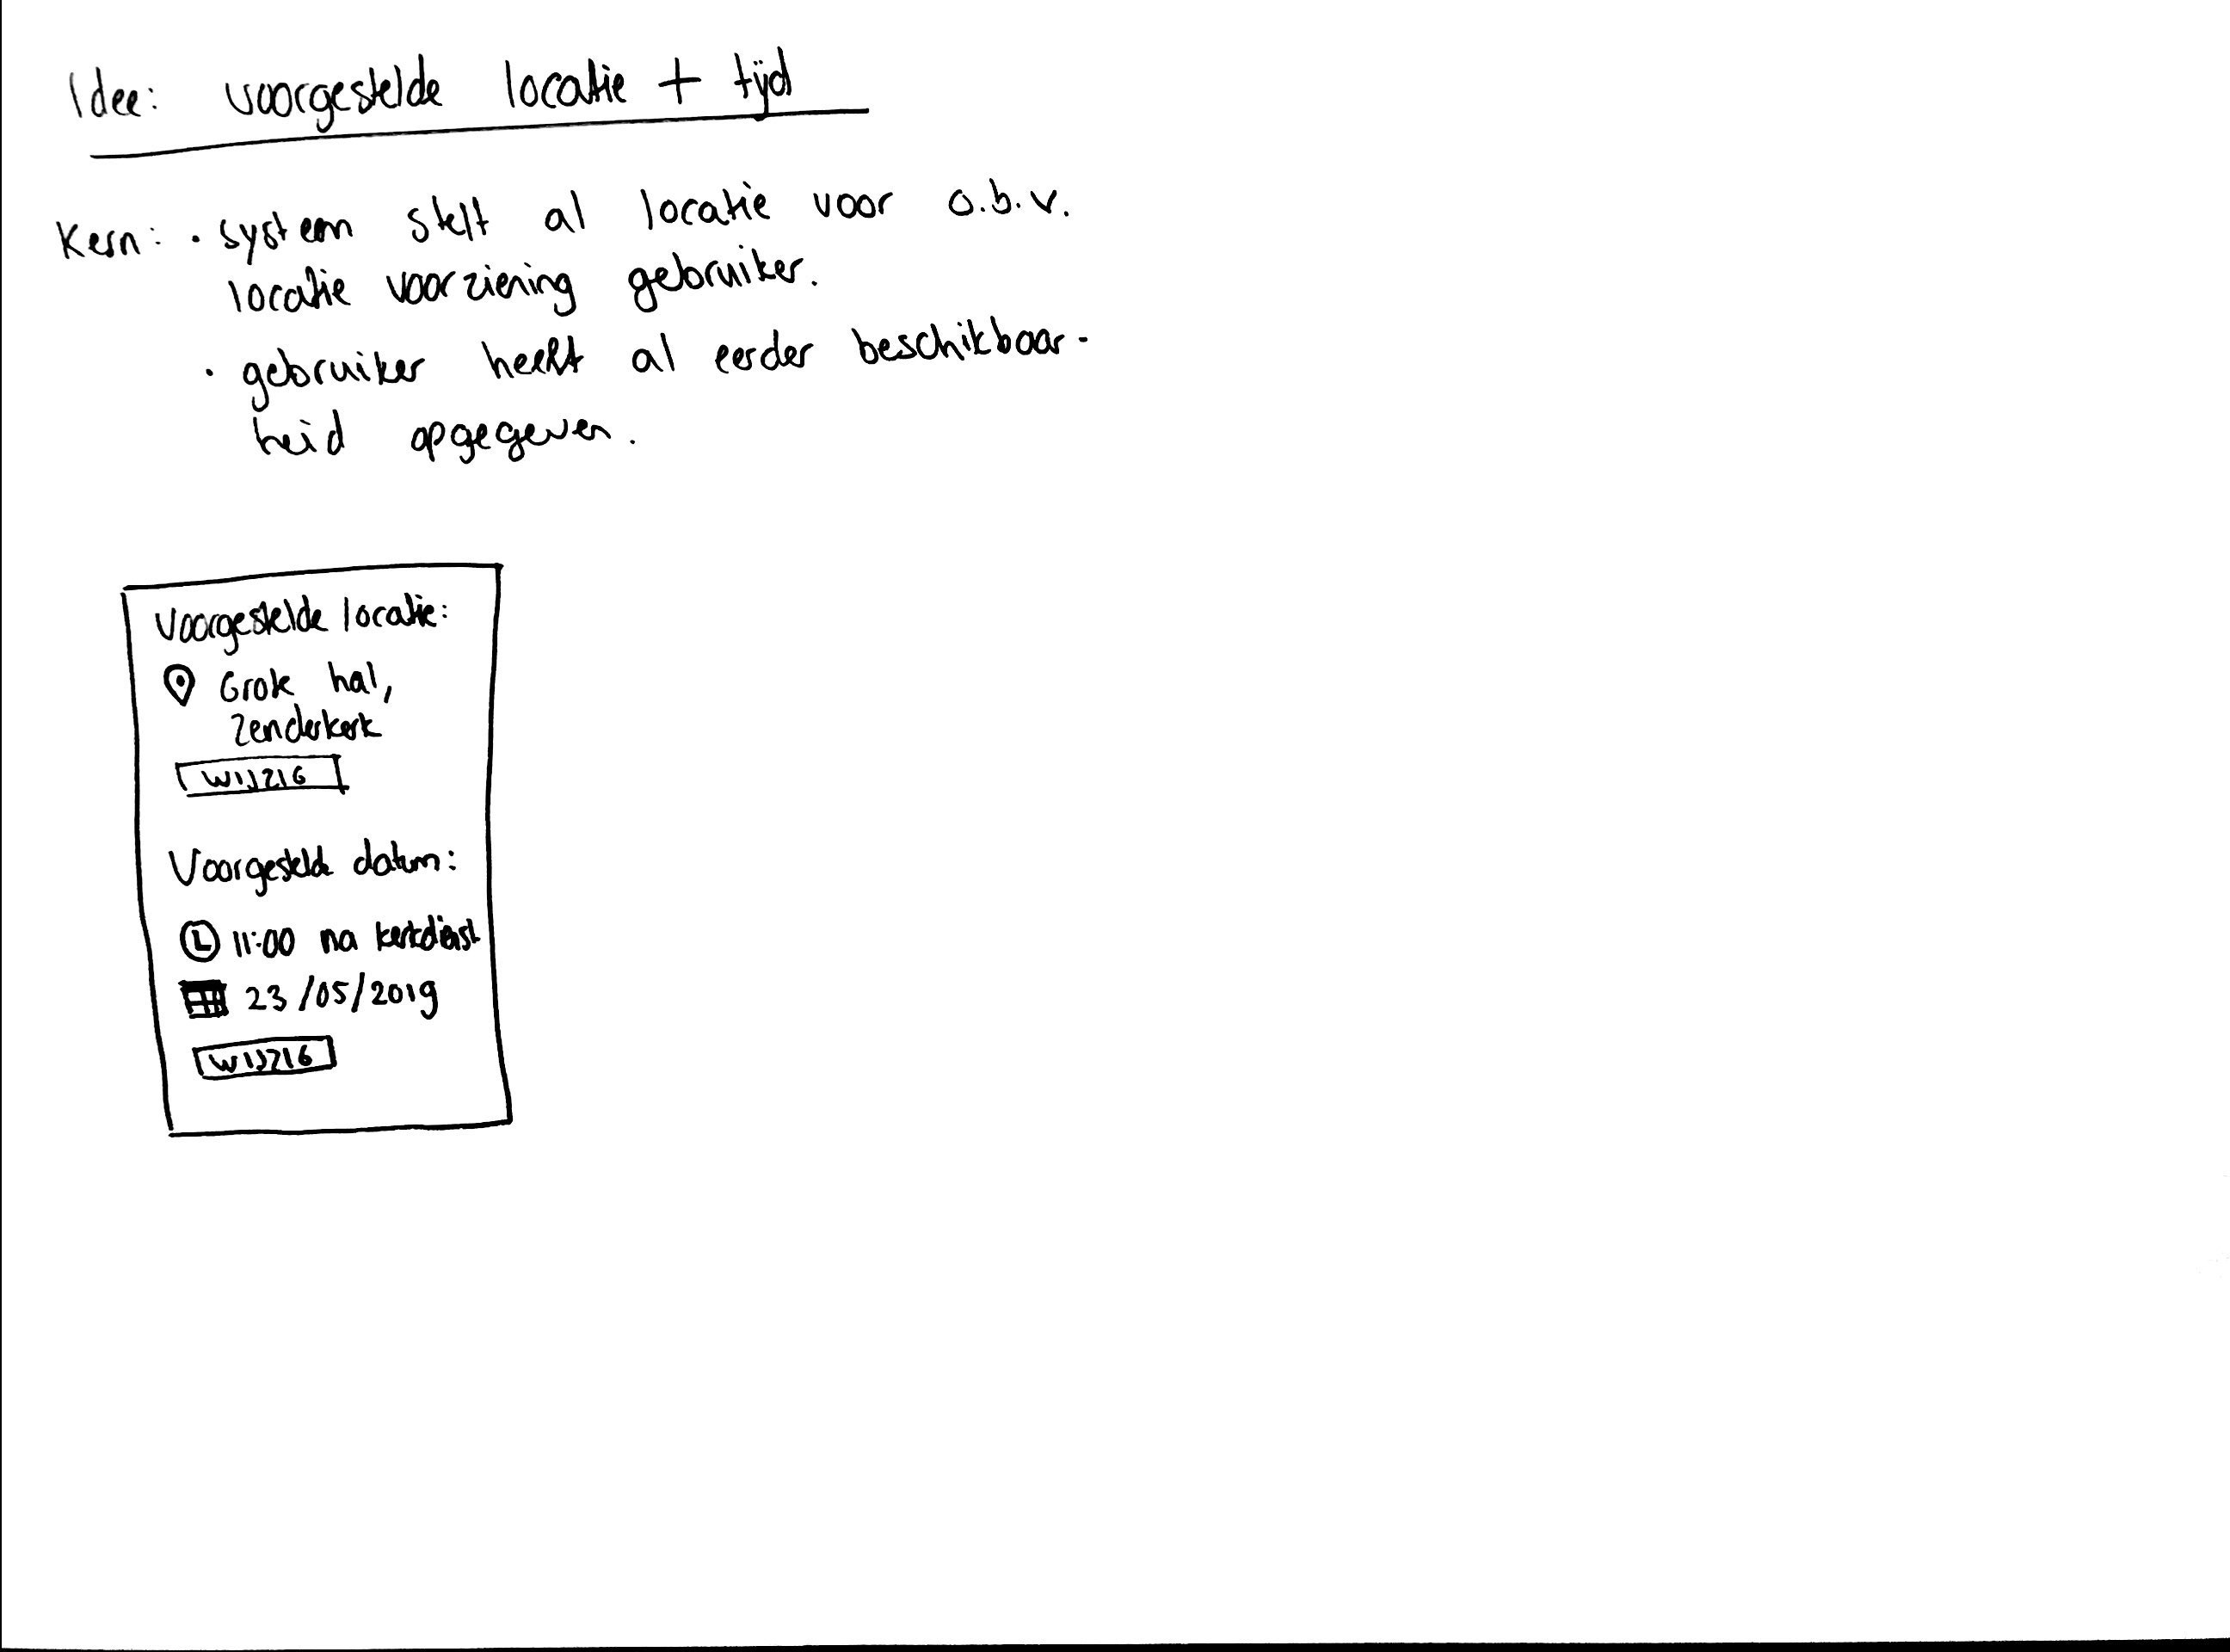 Idee: voorgestelde locatie + tijd
Kern: • systeem stelt al locatie voor o.b.v.
locatie voorziening gebruiker.
• gebruiker heeft al eerder beschikbaar-
heid opgegeven.
Voorgestelde locatie:
Grote hal,
Zenderkerk
WIJZIG
Voorgestelde datum:
11:00 na kerkdienst
23/05/2019
WIJZIG